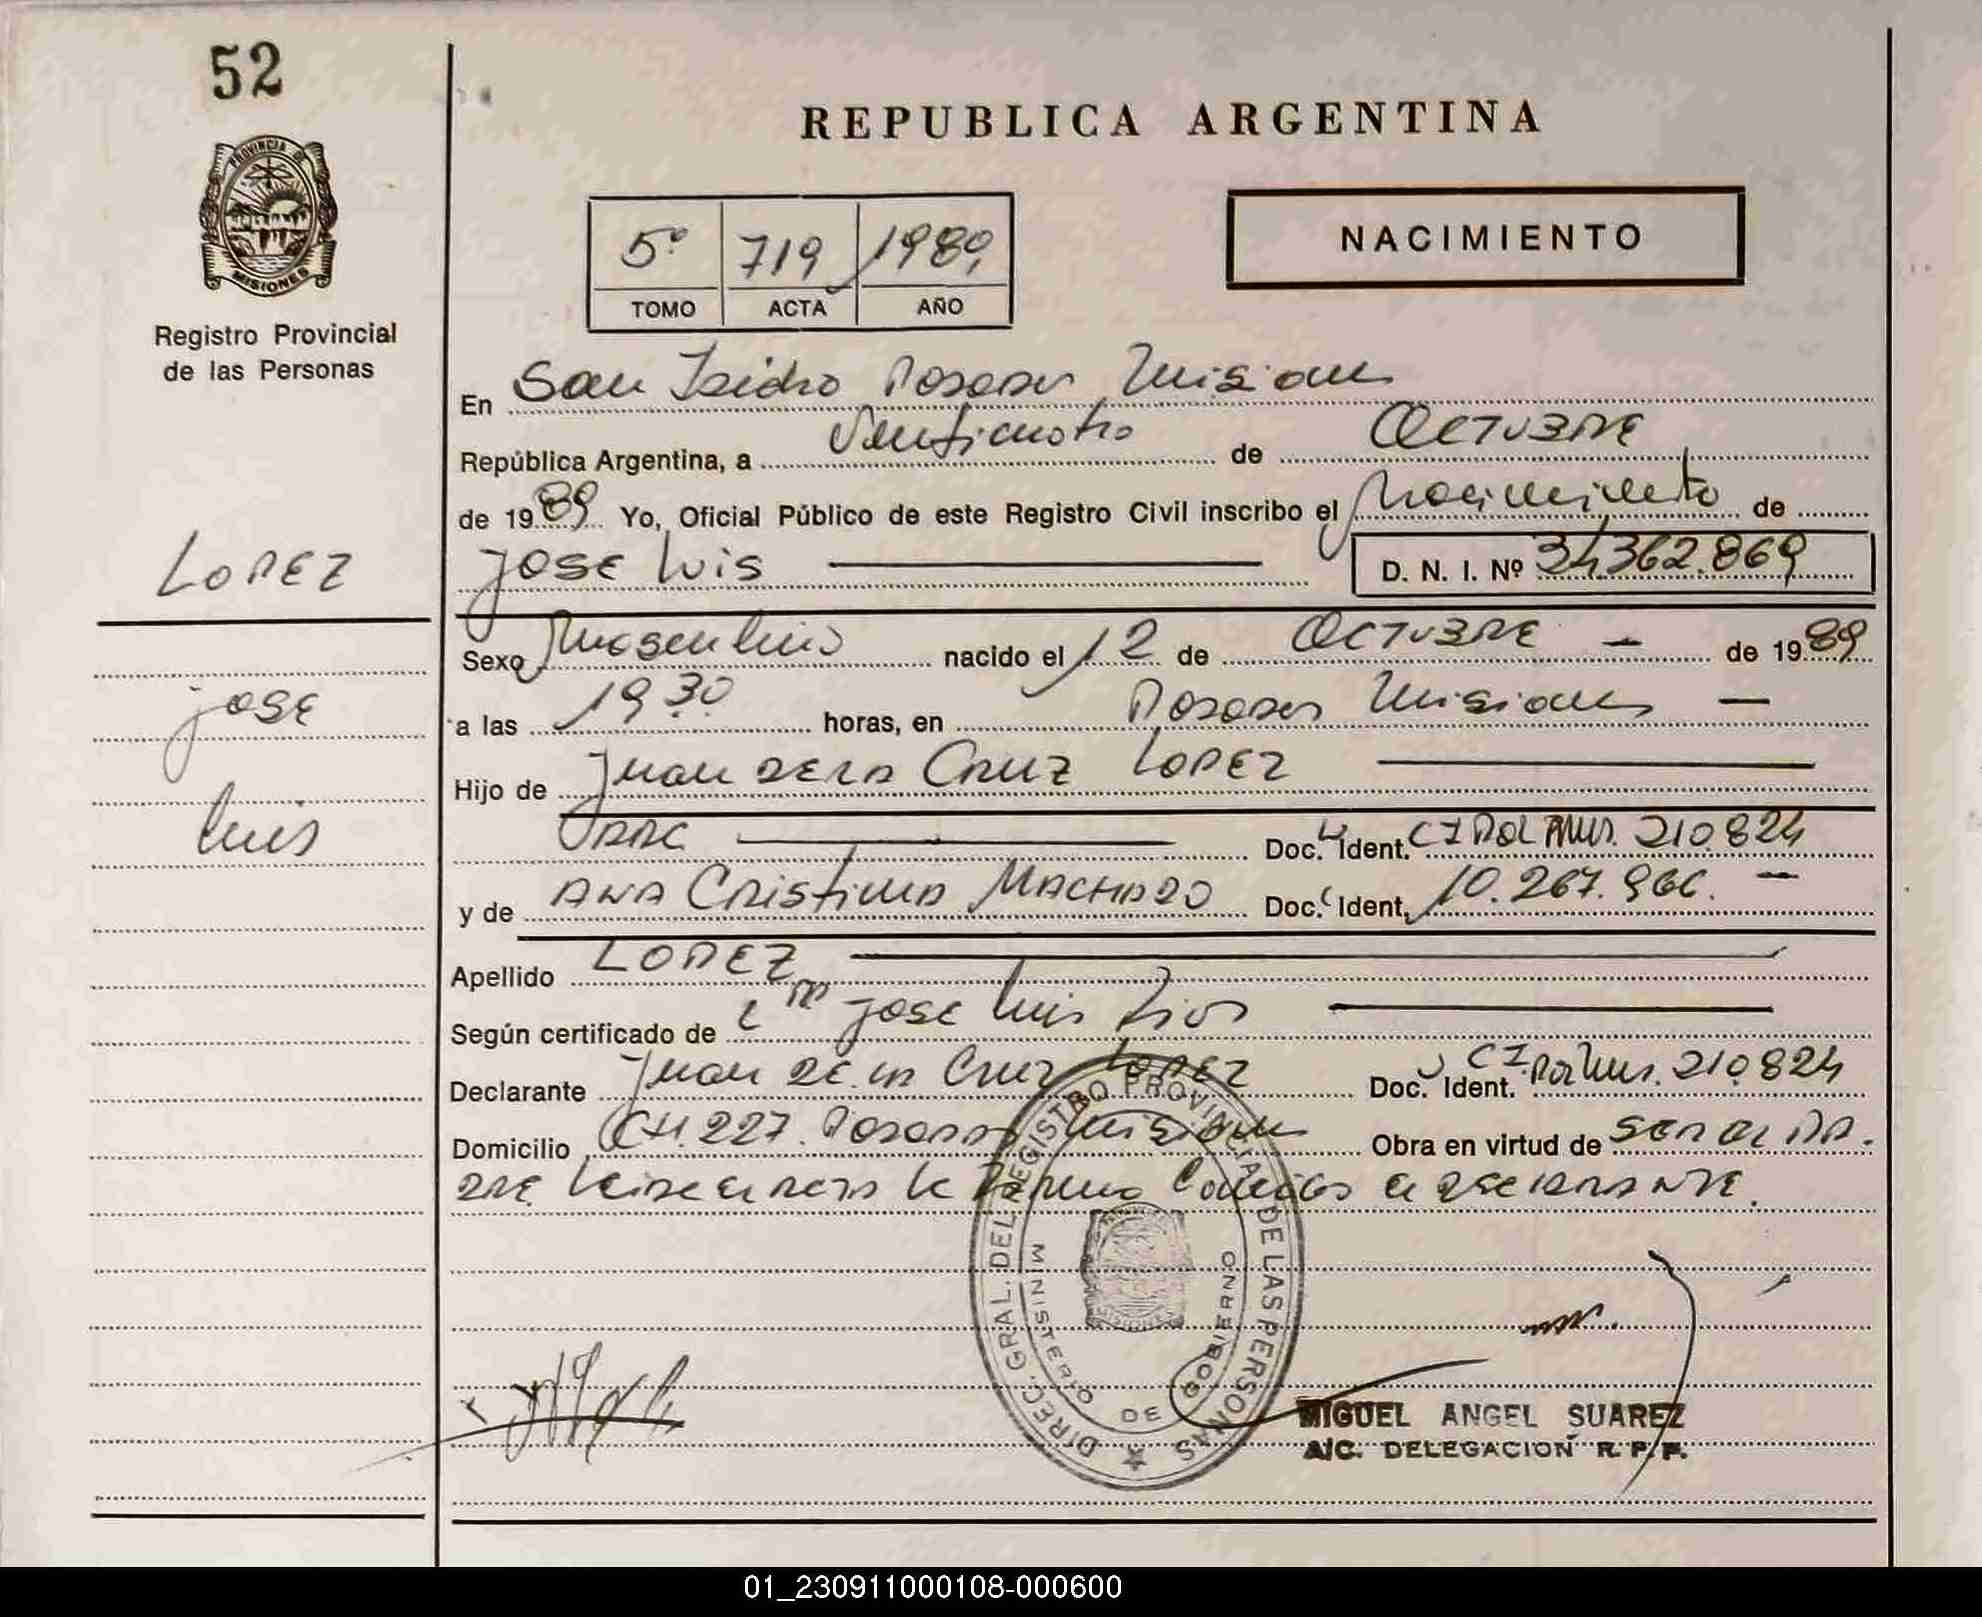 52
PROVINCIA DE
MISIONES
Registro Provincial
de las Personas
LOPEZ
jose
luis
REPUBLICA ARGENTINA
NACIMIENTO
5º 719 1989
TOMO ACTA AÑO
En San Isidro Posadas Misiones
República Argentina, a Veinticuatro de OCTUBRE
de 1989 Yo, Oficial Público de este Registro Civil inscribo el Nacimiento de
JOSE LUIS D. N. I. Nº 34.362.869
Sexo Masculino nacido el 12 de OCTUBRE — de 1989
a las 19 30 horas, en Posadas Misiones —
Hijo de Juan DE LA CRUZ LOPEZ
Doc. Ident. CI Pol Mis. 210.824
y de ANA CRISTINA MACHADO Doc. Ident. 10.267.966. —
Apellido LOPEZ
Según certificado de jose luis Rios
Declarante Juan DE LA Cruz LOPEZ Doc. Ident. CI Pol Mis. 210.824
Domicilio CH. 227. Posadas Misiones Obra en virtud de SER EL PA-
DRE
DIREC. GRAL. DEL REGISTRO PROVINCIAL DE LAS PERSONAS
MINISTERIO DE GOBIERNO
MIGUEL ANGEL SUAREZ
A/C. DELEGACION R. P. P.
01_230911000108-000600